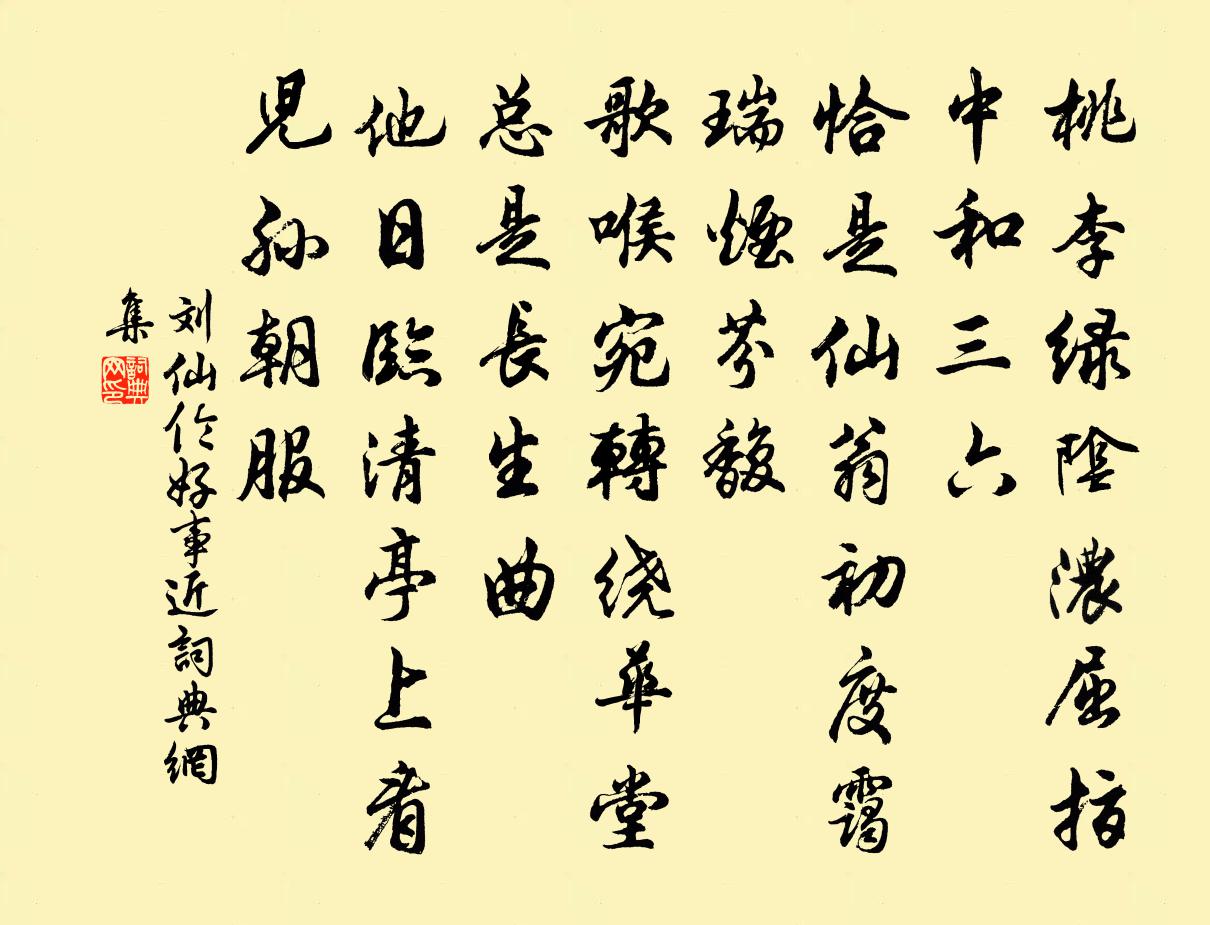 桃李绿陰濃屈指
中和三六
恰是仙翁初度靄
瑞煙芬馥
歌喉宛轉绕華堂
总是長生曲
他日臨清亭上看
児孙朝服
刘仙伦好事近詞典網
集
詞典网印